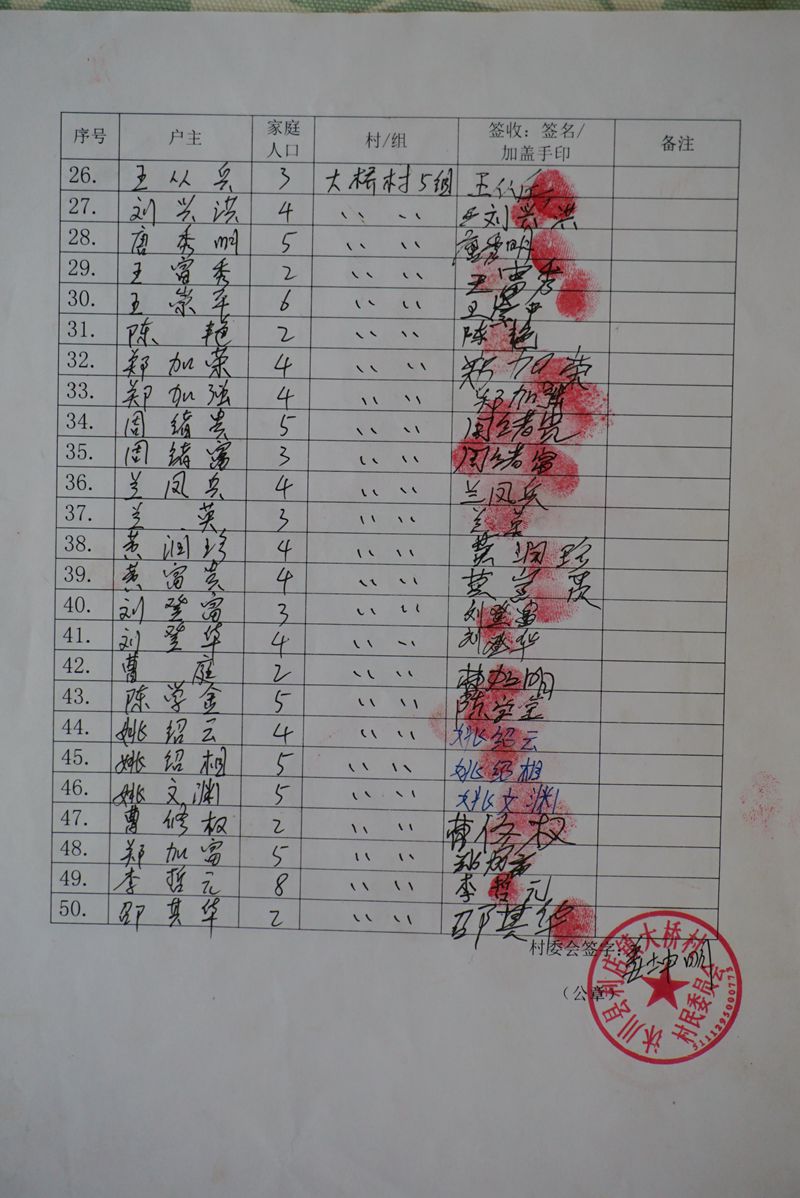 序号 户主 家庭人口 村/组 签收：签名/加盖手印 备注
26. 王从兵 3 大桥村5组
27. 刘兴洪 4 〃 〃 刘兴洪
28. 唐秀明 5 〃 〃 唐秀明
29. 王富秀 2 〃 〃 王富秀
30. 王崇军 6 〃 〃
31. 陈艳 2 〃 〃 陈艳
32. 郑加荣 4 〃 〃 郑加荣
33. 郑加强 4 〃 〃 郑加强
34. 周绪贵 5 〃 〃 周绪贵
35. 周绪富 3 〃 〃 周绪富
36. 兰凤兵 4 〃 〃 兰凤兵
37. 兰英 3 〃 〃 兰英
38. 黄润珍 4 〃 〃 黄润珍
39. 黄富贵 4 〃 〃
40. 刘登富 3 〃 〃 刘登富
41. 刘登华 4 〃 〃 刘登华
42. 曹庭 2 〃 〃
43. 陈学金 5 〃 〃
44. 姚绍云 4 〃 〃 姚绍云
45. 姚绍相 5 〃 〃 姚绍相
46. 姚文渊 5 〃 〃 姚文渊
47. 曹修权 2 〃 〃 曹修权
48. 郑加富 5 〃 〃
49. 李哲元 8 〃 〃 李哲元
50. 邵其华 2 〃 〃 邵其华
村委会签字：
（公章）
沐川县利店镇大桥村
村民委员会
5111295000773